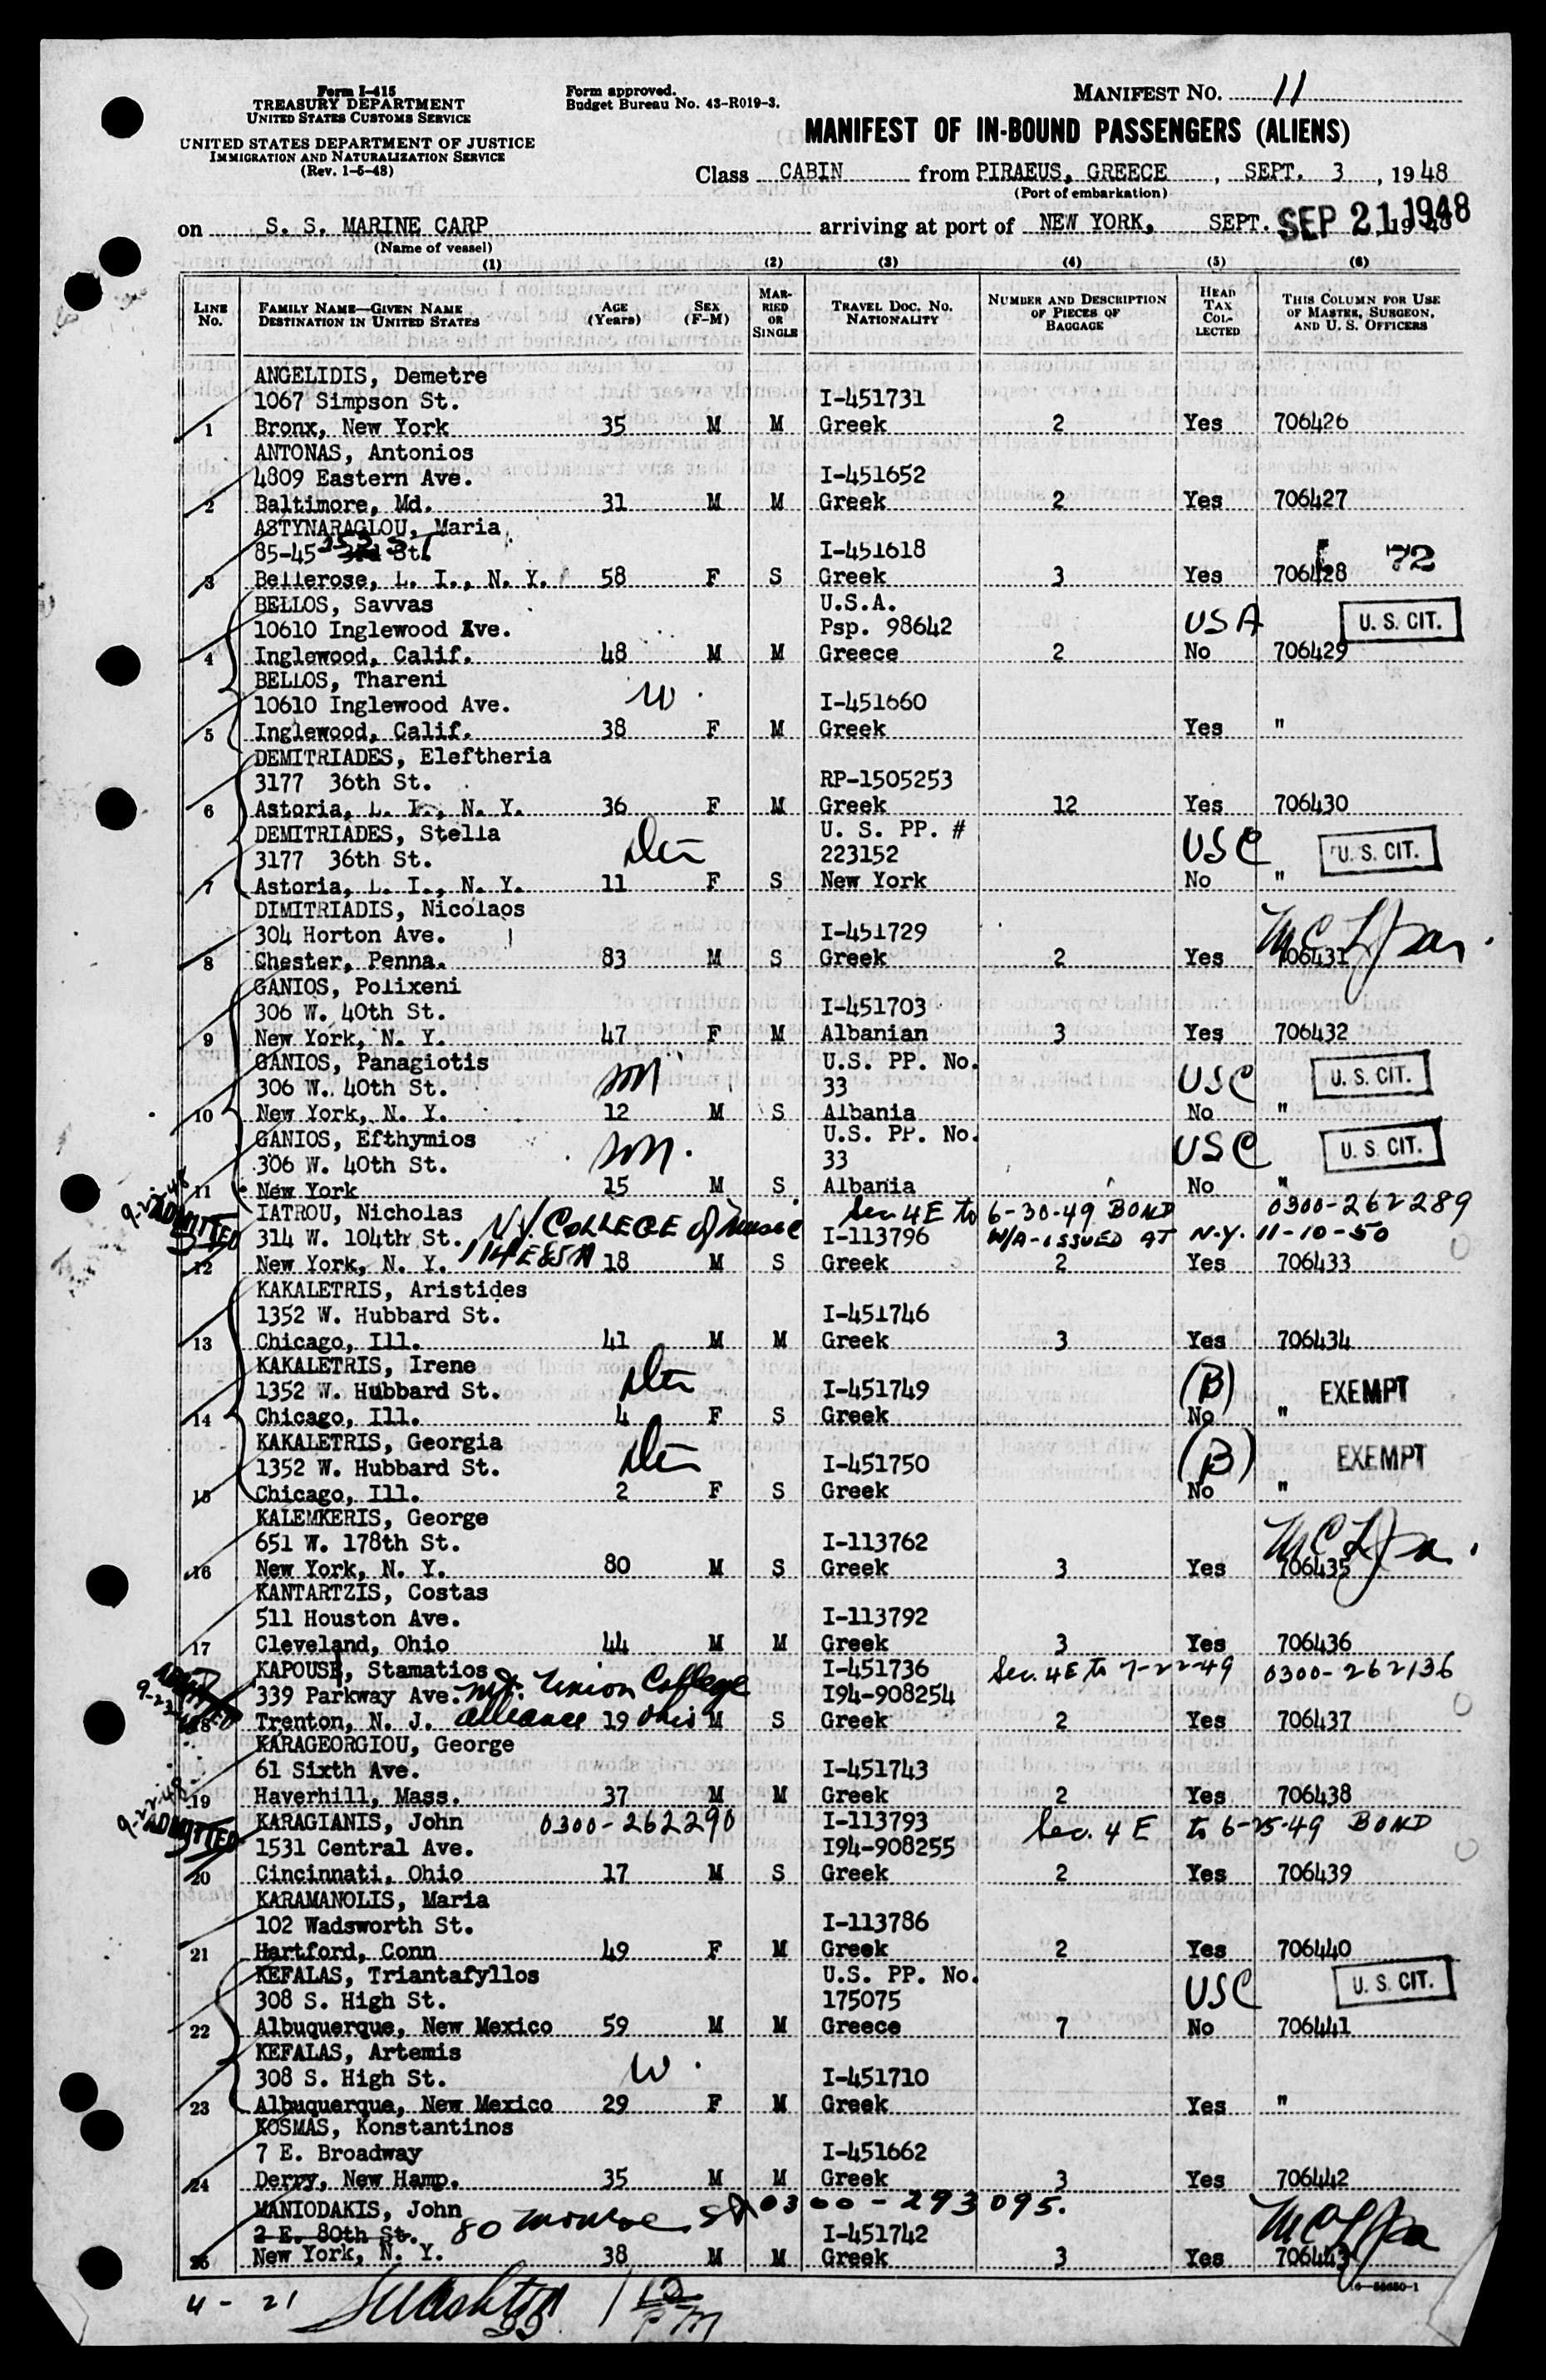 Form I-415
TREASURY DEPARTMENT
UNITED STATES CUSTOMS SERVICE
UNITED STATES DEPARTMENT OF JUSTICE
IMMIGRATION AND NATURALIZATION SERVICE
(Rev. 1-5-48)
Form approved.
Budget Bureau No. 43-R019-3.
MANIFEST NO. 11
MANIFEST OF IN-BOUND PASSENGERS (ALIENS)
Class CABIN from PIRAEUS, GREECE, SEPT. 3, 1948
(Port of embarkation)
on S. S. MARINE CARP arriving at port of NEW YORK, SEPT. SEP 21 1948
(Name of vessel)
(1) (2) (3) (4) (5) (6)
LINE No. FAMILY NAME—GIVEN NAME DESTINATION IN UNITED STATES AGE (Years) SEX (F-M) MARRIED OR SINGLE TRAVEL DOC. NO. NATIONALITY NUMBER AND DESCRIPTION OF PIECES OF BAGGAGE HEAD TAX COLLECTED THIS COLUMN FOR USE OF MASTER, SURGEON, AND U. S. OFFICERS
ANGELIDIS, Demetre
1067 Simpson St. I-451731
1 Bronx, New York 35 M M Greek 2 Yes 706426
ANTONAS, Antonios
4809 Eastern Ave. I-451652
2 Baltimore, Md. 31 M M Greek 2 Yes 706427
ASTYNARAGLOU, Maria
85-45 253 St. I-451618 72
3 Bellerose, L. I., N. Y. 58 F S Greek 3 Yes 706428
BELLOS, Savvas U.S.A.
10610 Inglewood Ave. Psp. 98642 USA U. S. CIT.
4 Inglewood, Calif. 48 M M Greece 2 No 706429
BELLOS, Thareni W.
10610 Inglewood Ave. I-451660
5 Inglewood, Calif. 38 F M Greek Yes "
DEMITRIADES, Eleftheria
3177 36th St. RP-1505253
6 Astoria, L. I., N. Y. 36 F M Greek 12 Yes 706430
DEMITRIADES, Stella U. S. PP. #
3177 36th St. Dtr 223152 USC U. S. CIT.
7 Astoria, L. I., N. Y. 11 F S New York No "
DIMITRIADIS, Nicolaos
304 Horton Ave. I-451729
8 Chester, Penna. 83 M S Greek 2 Yes 706431
GANIOS, Polixeni
306 W. 40th St. I-451703
9 New York, N. Y. 47 F M Albanian 3 Yes 706432
GANIOS, Panagiotis U.S. PP. No.
306 W. 40th St. son 33 USC U. S. CIT.
10 New York, N. Y. 12 M S Albania No "
GANIOS, Efthymios U.S. PP. No.
306 W. 40th St. son. 33 USC U. S. CIT.
11 New York 15 M S Albania No "
9-22-48 ADMITTED
IATROU, Nicholas Sec. 4E to 6-30-49 BOND 0300-262289
314 W. 104th St. N.Y. COLLEGE of Music I-113796 W/A-ISSUED AT N.Y. 11-10-50
12 New York, N. Y. 114 E 85 St 18 M S Greek 2 Yes 706433
KAKALETRIS, Aristides
1352 W. Hubbard St. I-451746
13 Chicago, Ill. 41 M M Greek 3 Yes 706434
KAKALETRIS, Irene
1352 W. Hubbard St. Dtr I-451749 (B) EXEMPT
14 Chicago, Ill. 4 F S Greek No "
KAKALETRIS, Georgia
1352 W. Hubbard St. Dtr I-451750 (B) EXEMPT
15 Chicago, Ill. 2 F S Greek No "
KALEMKERIS, George
651 W. 178th St. I-113762
16 New York, N. Y. 80 M S Greek 3 Yes 706435
KANTARTZIS, Costas
511 Houston Ave. I-113792
17 Cleveland, Ohio 44 M M Greek 3 Yes 706436
ADMITTED
KAPOUSI, Stamatios I-451736 Sec. 4E to 7-22-49 0300-262136
339 Parkway Ave. Mt. Union College I94-908254
18 Trenton, N. J. Alliance Ohio 19 M S Greek 2 Yes 706437
KARAGEORGIOU, George
61 Sixth Ave. I-451743
19 Haverhill, Mass. 37 M M Greek 2 Yes 706438
9-22-48 ADMITTED
KARAGIANIS, John 0300-262290 I-113793 Sec. 4 E to 6-25-49 BOND
1531 Central Ave. I94-908255
20 Cincinnati, Ohio 17 M S Greek 2 Yes 706439
KARAMANOLIS, Maria
102 Wadsworth St. I-113786
21 Hartford, Conn 49 F M Greek 2 Yes 706440
KEFALAS, Triantafyllos U.S. PP. No.
308 S. High St. 175075 USC U. S. CIT.
22 Albuquerque, New Mexico 59 M M Greece 7 No 706441
KEFALAS, Artemis
308 S. High St. W. I-451710
23 Albuquerque, New Mexico 29 F M Greek Yes "
KOSMAS, Konstantinos
7 E. Broadway I-451662
24 Derry, New Hamp. 35 M M Greek 3 Yes 706442
MANIODAKIS, John 0300-293095.
2 E. 80th St. 80 Monroe St I-451742
25 New York, N. Y. 38 M M Greek 3 Yes 706443
4 - 21